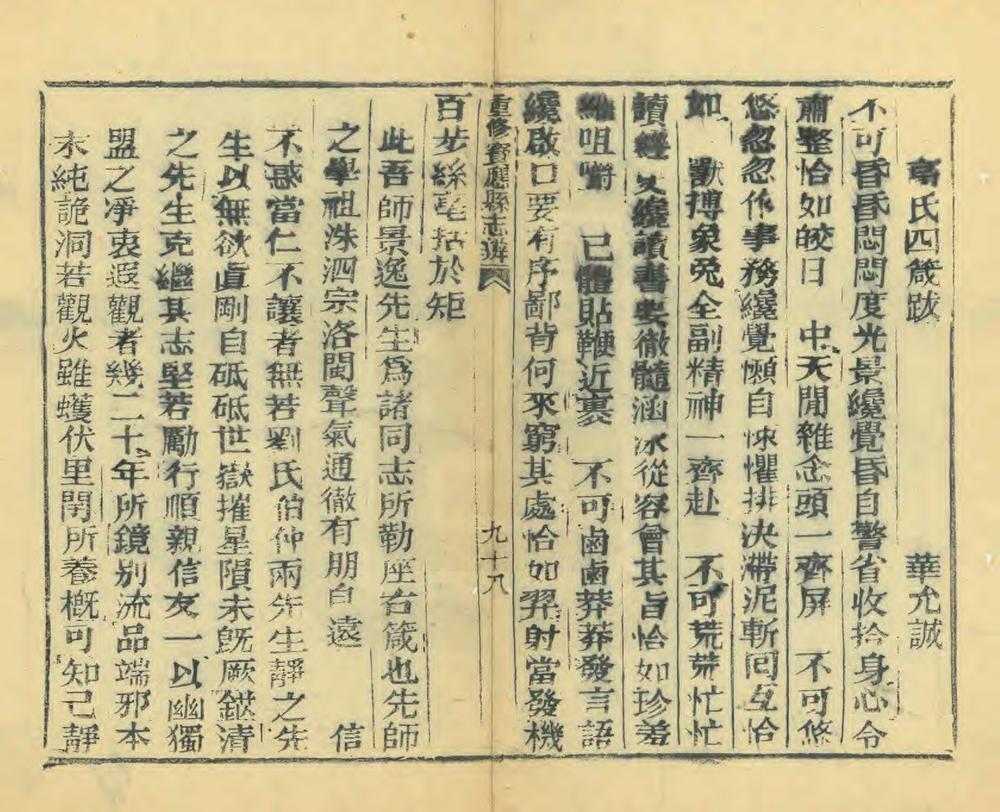 氏四箴跋 華允誠
不可昏昏悶悶度光景纔覺昏自警省收拾身心令
肅整恰如皎日 中天閒雜念頭一齊屏 不可悠
悠忽忽作事務纔覺懶自悚懼排決滯泥斬回互恰
如 獸搏象兎全副精神一齊赴 不可荒荒忙忙
讀經 纔讀書要徹髓涵泳從容會其旨恰如珍羞
咀嚼 已體貼鞭近裏 不可鹵鹵莽莽發言語
纔啟口要有序鄙背何來窮其處恰如羿射當發機
重修寶應縣志辨 九十八
百步絲毫括於矩
此吾師景逸先生爲諸同志所勒座右箴也先師
之學祖洙泗宗洛閩聲氣通徹有朋自遠 信
不惑當仁不讓者無若劉氏伯仲兩先生靜之先
生以無欲眞剛自砥砥世嶽摧星隕未旣厥鍖清
之先生克繼其志堅若勵行順親信友一以幽獨
盟之凈衷遐觀者幾二十年所鏡別流品端邪本
末純詭洞若觀火雖蠖伏里閈所養槪可知己靜